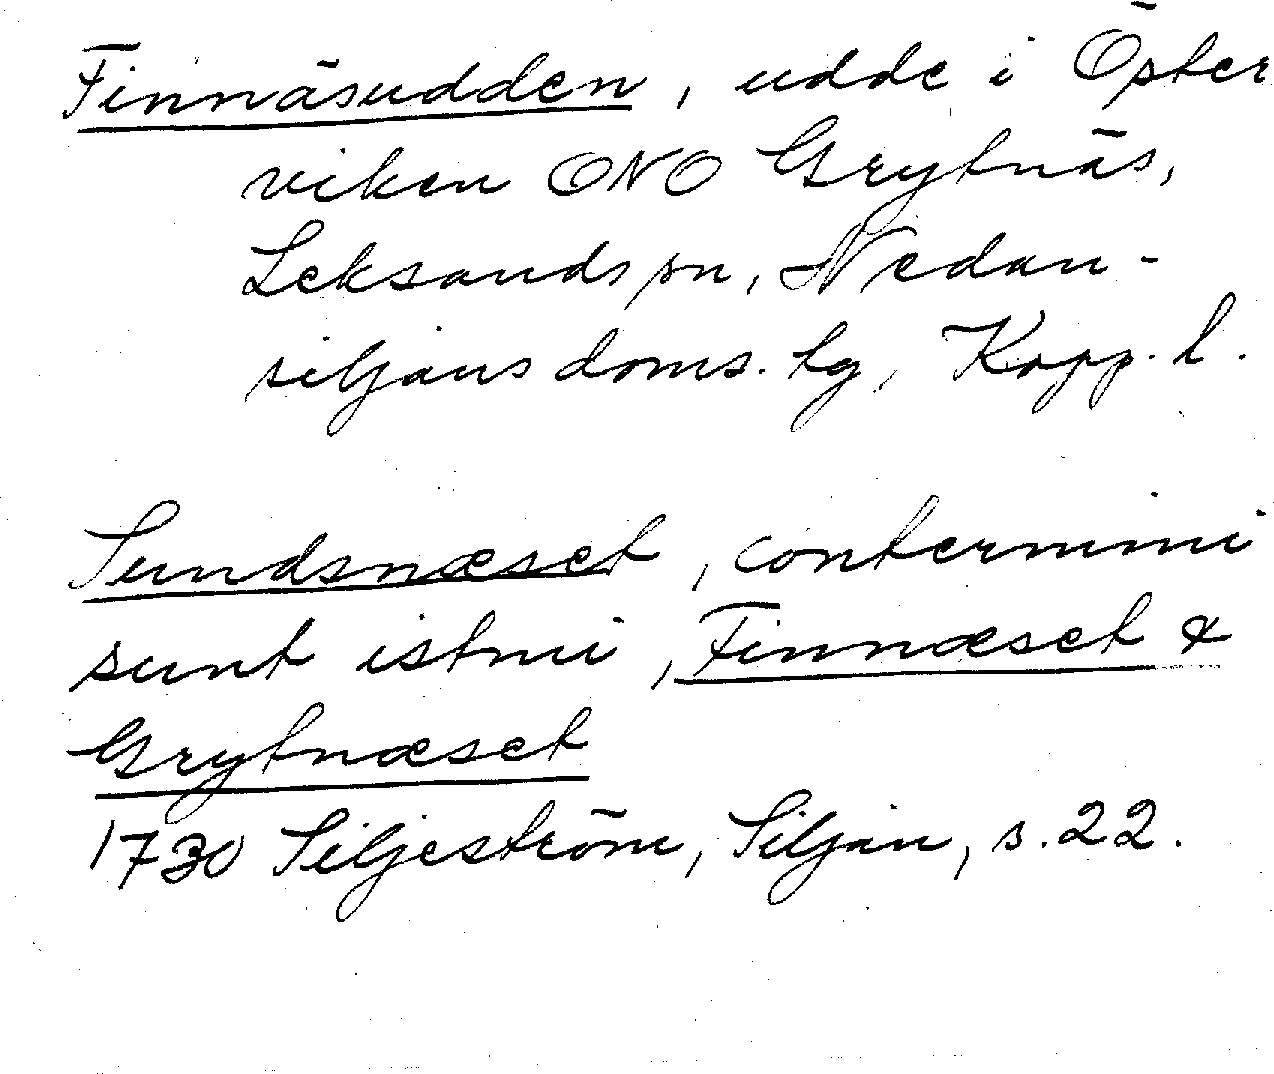 Finnäsudden, udde i Öster
viken ONO Grytnäs,
Leksands sn, Nedan-
siljans doms. lg, Kopp. l.
Sundsnæset, contermini
sunt istmi, Finnæset &
Grytnæset
1730 Siljeström, Siljan, s. 22.